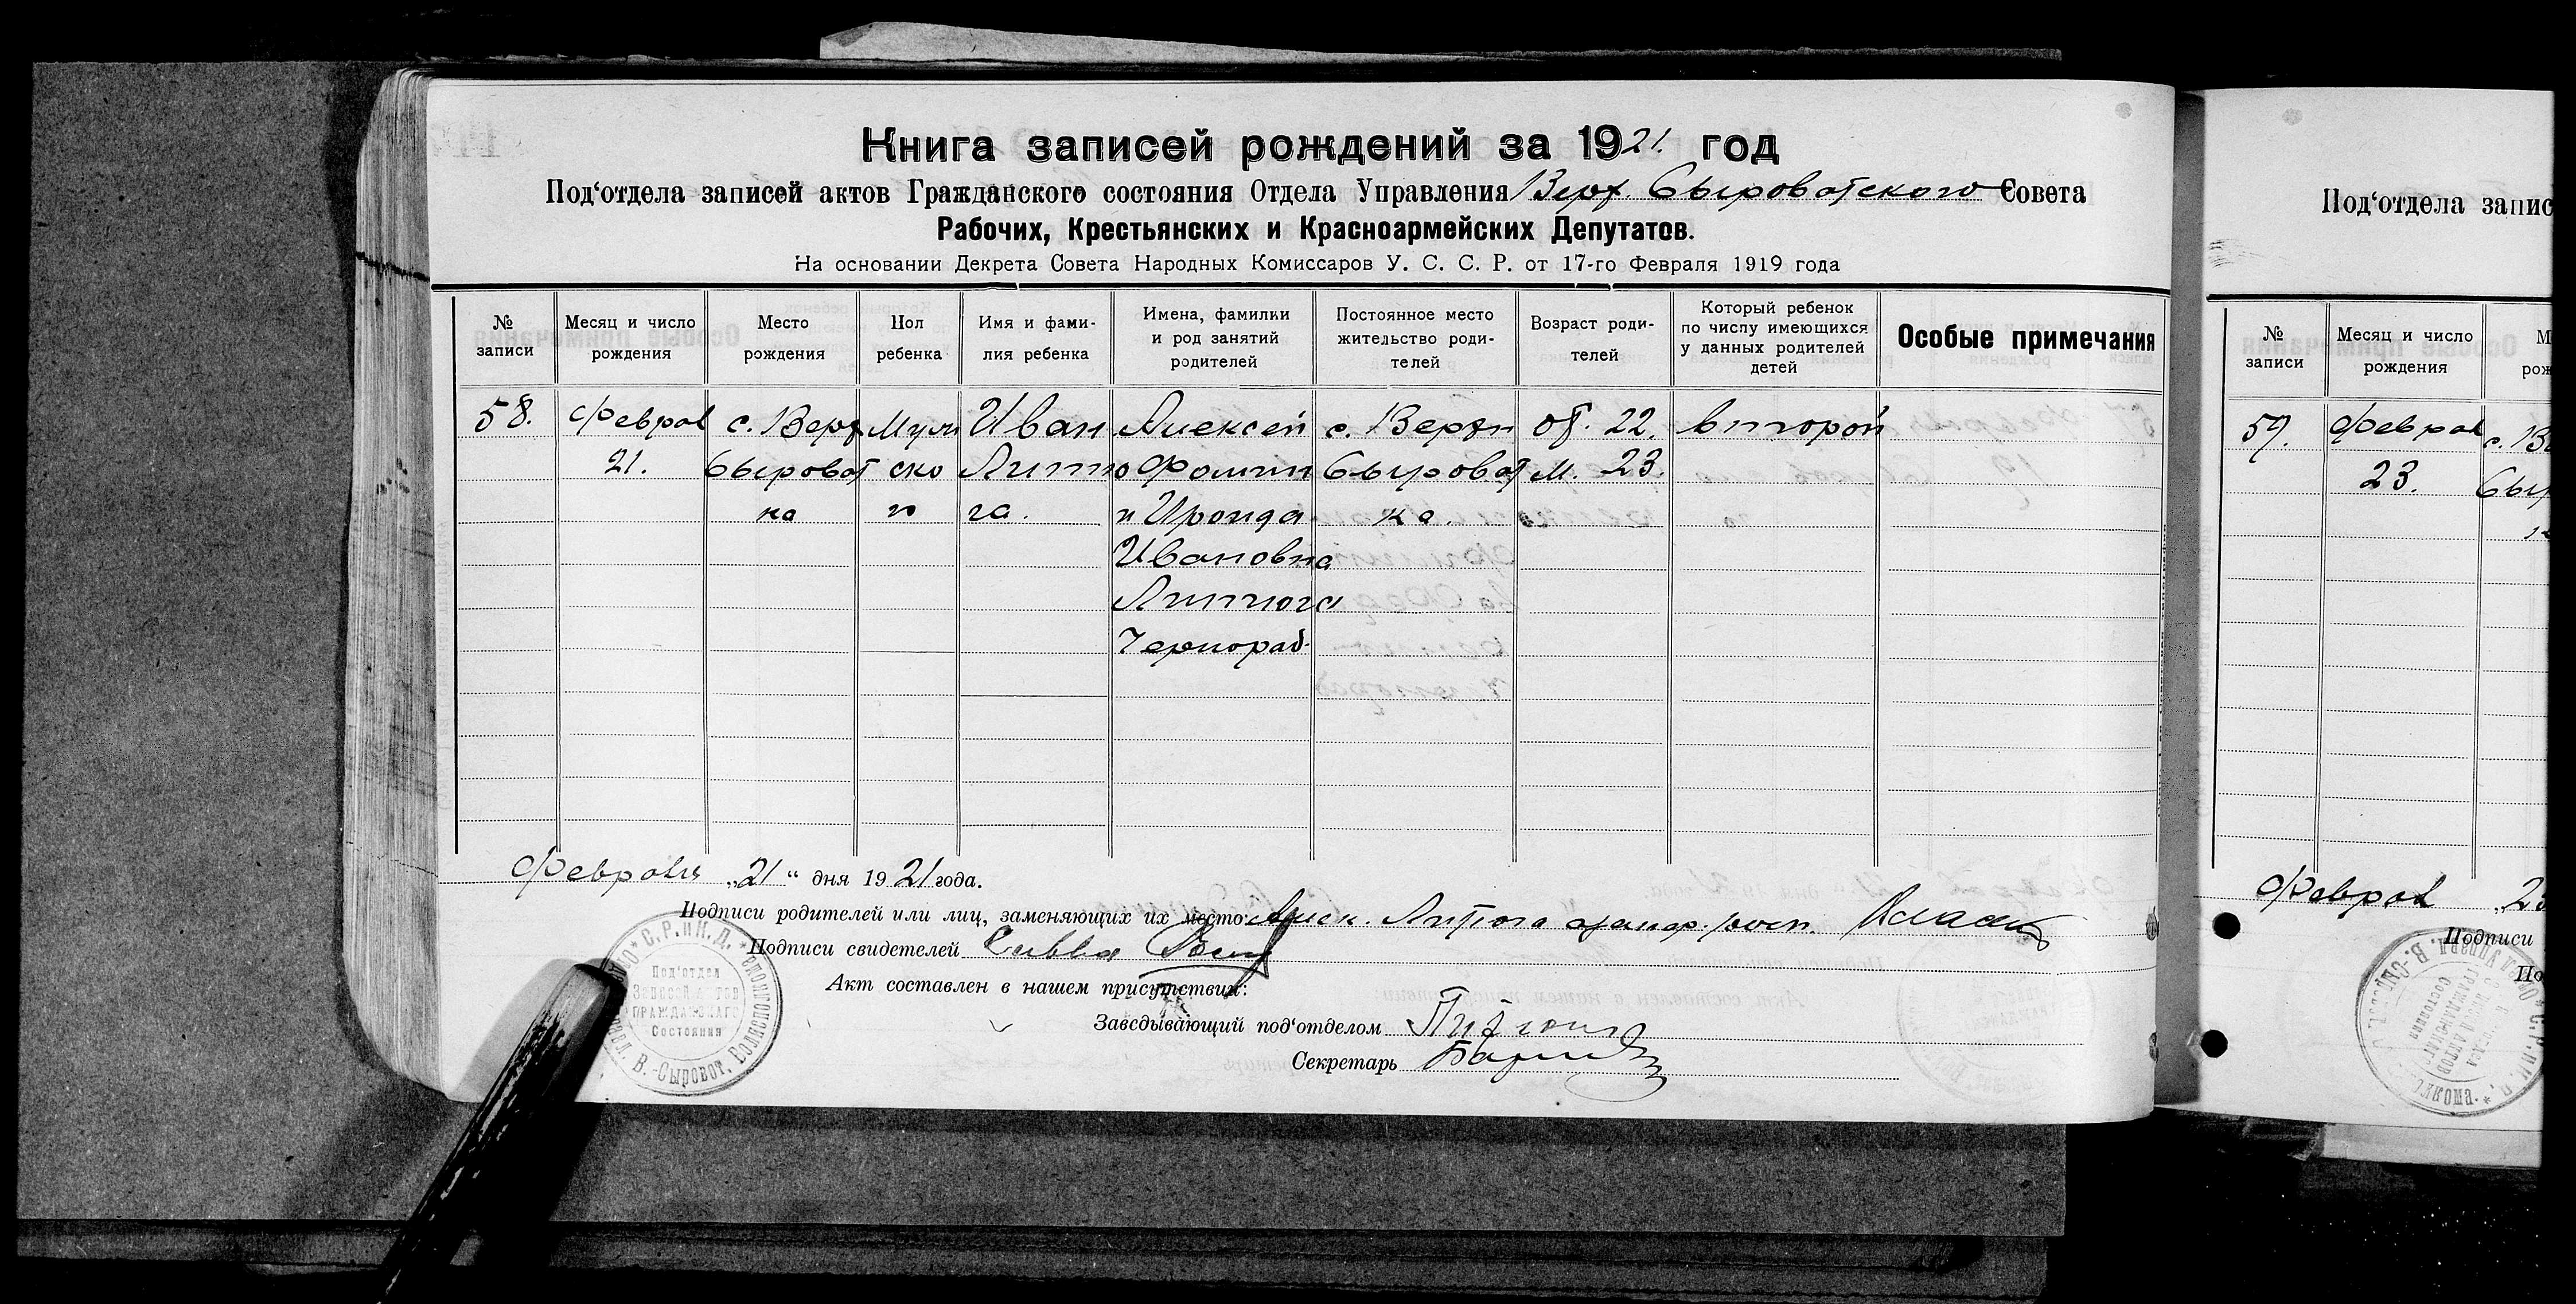 Книга записей рождений за 1921. год
Под‘отдела записей актов Гражданского состояния Отдела Управления Верх. Сыроватского Совета
Рабочих, Крестьянских и Красноармейских Депутатов.
На основании Декрета Совета Народных Комиссаров У. С. С. Р. от 17-го Февраля 1919 года
№ записи
Месяц и число рождения
Место рождения
Пол ребенка
Имя и фами-
лия ребенка
Имена, фамилки
и род занятий
родителей
Постоянное место
жительство роди-
телей
Возраст роди-
телей
Который ребенок
по числу имеющихся
у данных родителей
детей
Особые примечания
58.
Феврал
21.
с. Верх
Сыроват
ка
Мужи
ско
го
Иван
Литю
га.
Алексей
Фомич
и Ираида
Ивановна
Литюга
Чернораб.
с. Верхн
Сыроват
ка.
от. 22.
м. 23.
второй
Февраля „21“ дня 1921 года.
Подписи родителей или лиц, заменяющих их место: Алек. Литюга
Подписи свидетелей Савва
Акт составлен в нашем присутствии:
Заведывающий под‘отделом
Секретарь
С. Р. и К. Д.
Под‘отдел
Записей актов
ГРАЖДАНСКАГО
Состояния
В.-Сыроват. Волисполкома
Под‘отдела запис
№ записи
Месяц и число рождения
59.
Феврал
23.
с. В
Сыр
Феврал „23
Подписи